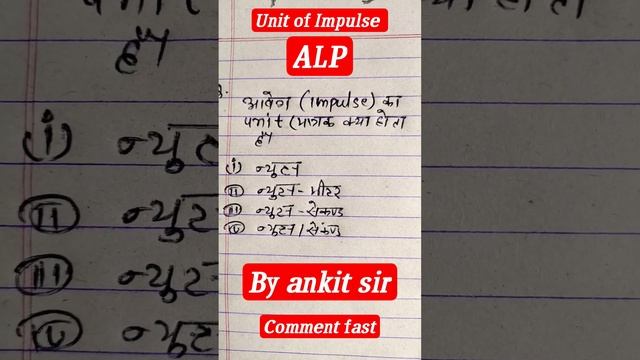 Unit of Impulse
ALP
आवेग (Impulse) का
Unit (मात्रक क्या होता
है।
(i) न्यूटन
(ii) न्यूटन - मीटर
(iii) न्यूटन - सेकण्ड
(iv) न्यूटन / सेकण्ड
By ankit sir
Comment fast